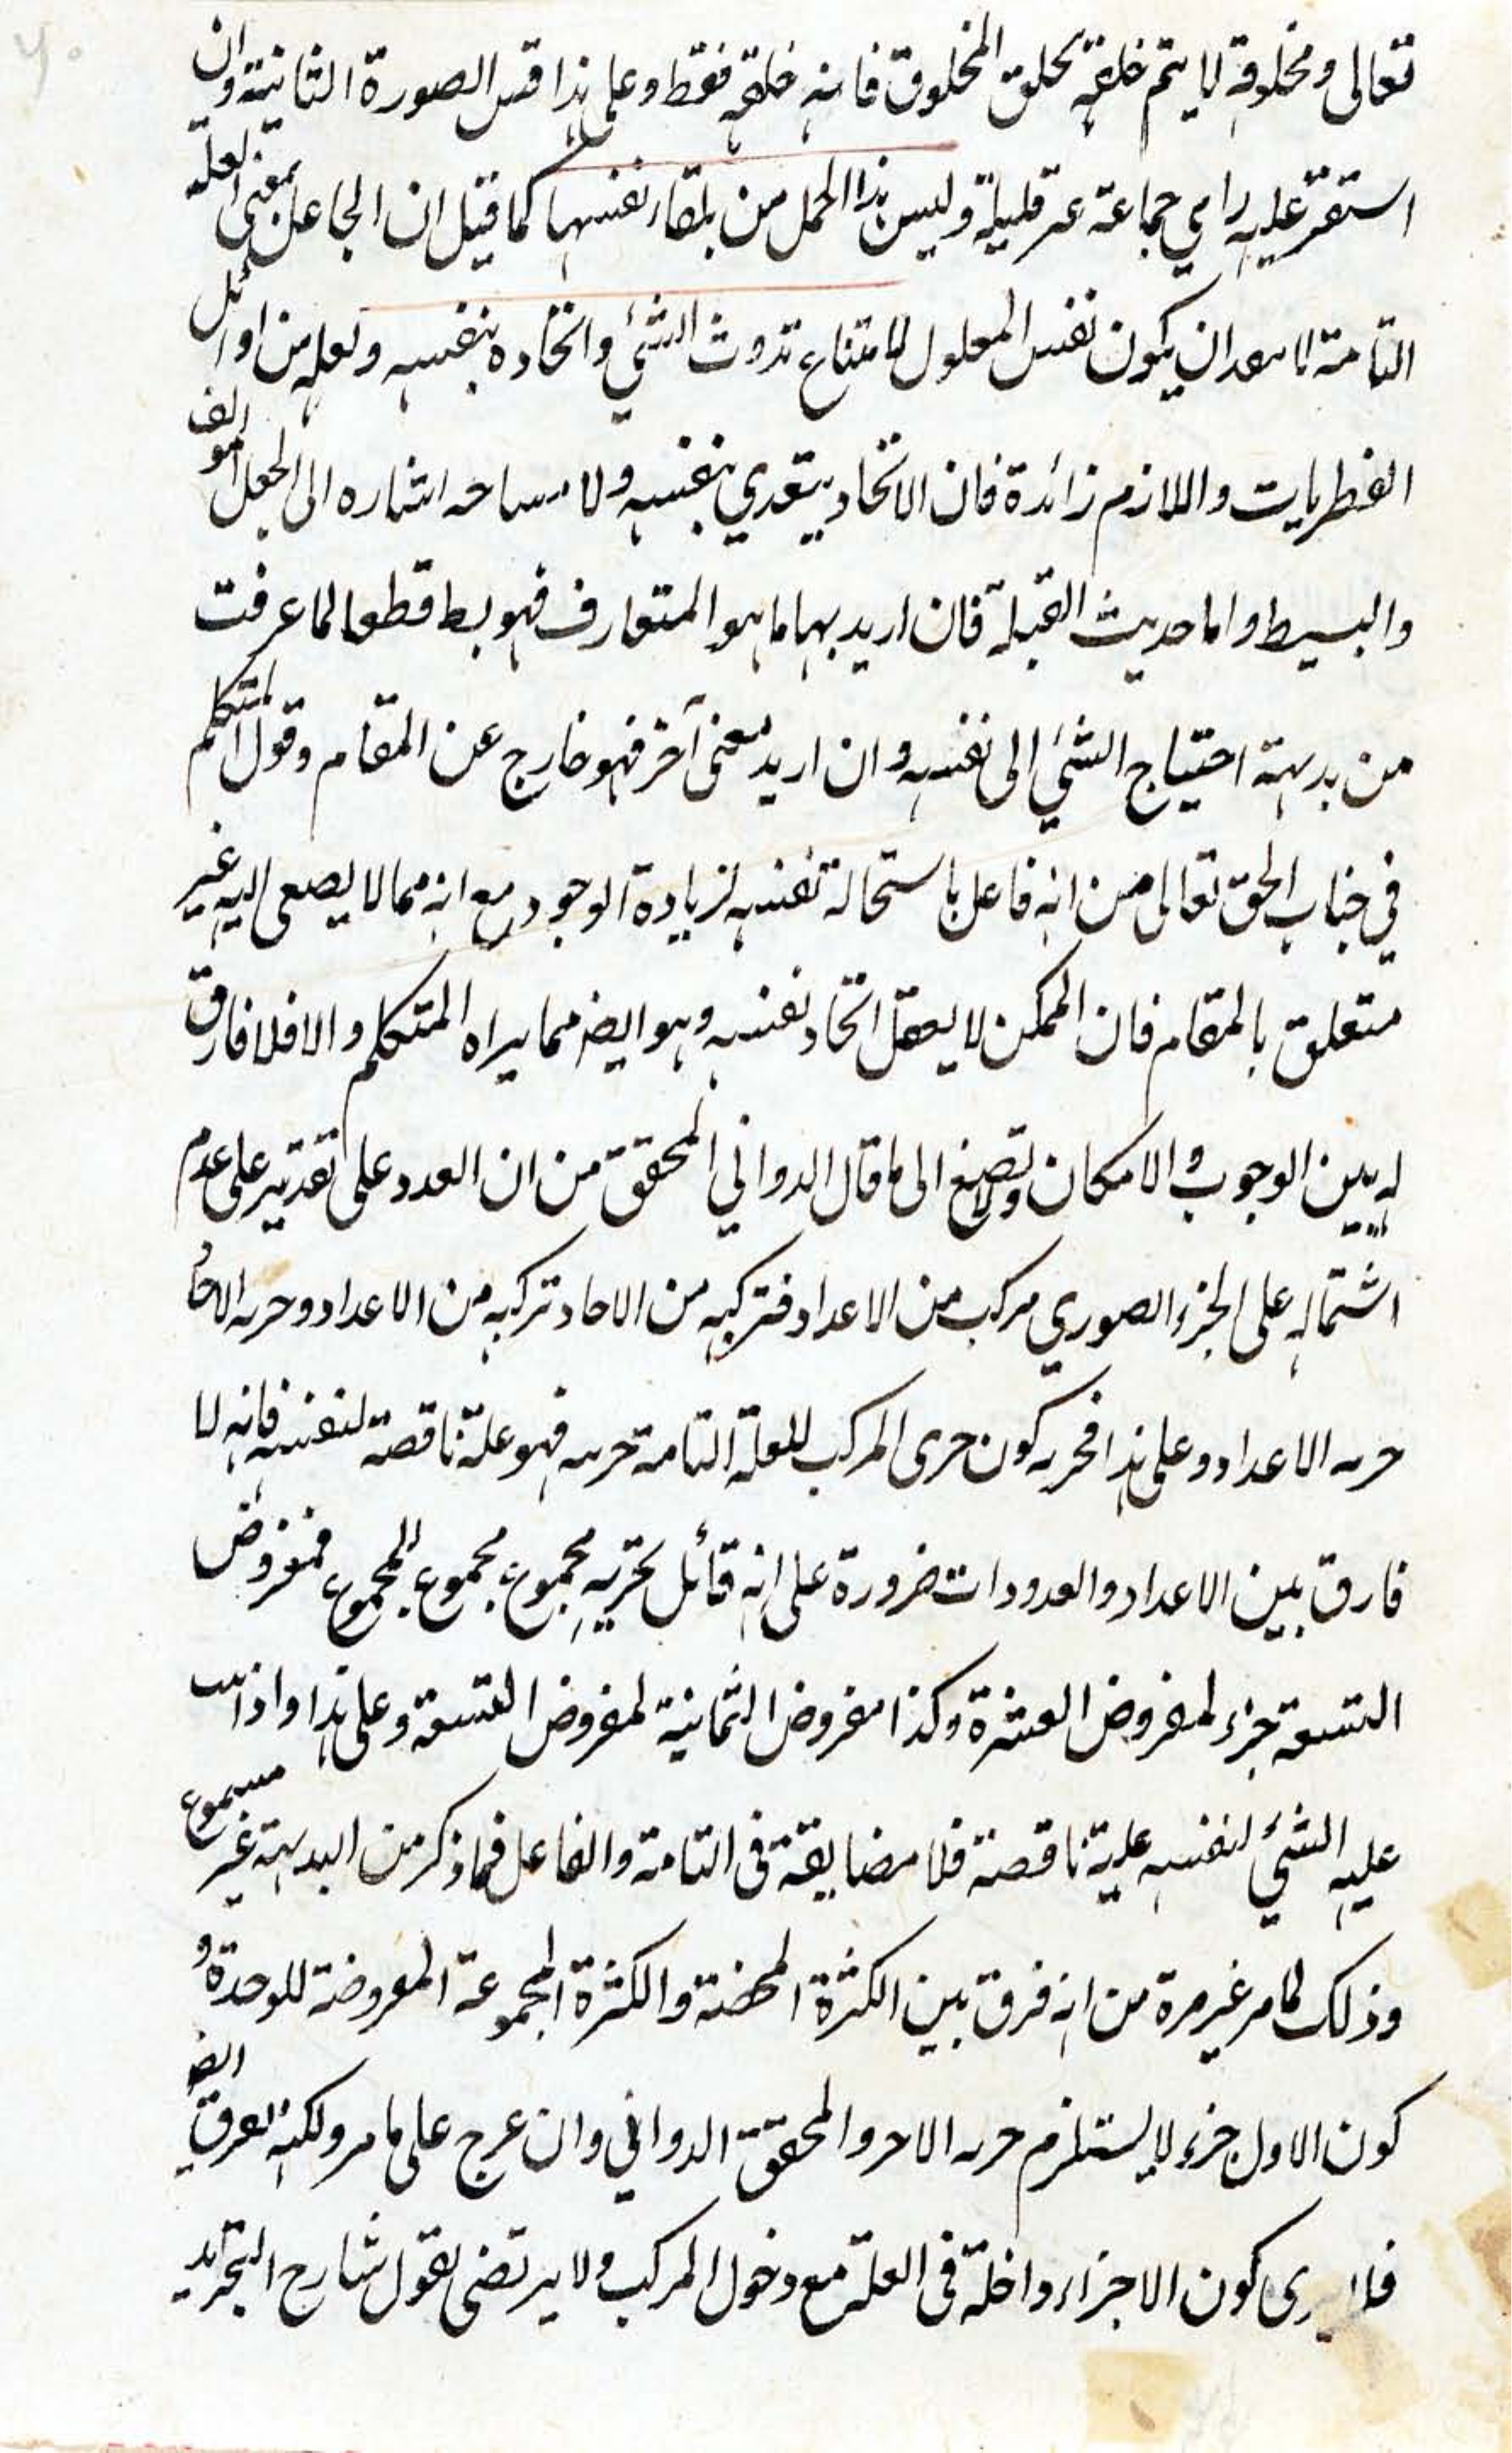 تعالى ومخلوقه لا يتم خلقه بخلق المخلوق فانه خلقه فقط وعلى هذا قس الصورة الثانية وان
استقر عليه رامي جماعة غير قليلة وليس هذا الحمل من تلقاء نفسها كما قيل ان الجاعل بمعنى العلة
التامة لا يبعد ان يكون نفس المعلول لامتناع تذوت الشئ واتحاده بنفسه ولعله من اوائل
الفطريات واللازم زائدة فان الاتحاد يتعدي بنفسه ولا مساحه اشاره الى الجعل المولف
والبسيط واما حديث القبلة فان اريد بها ما هو المتعارف فهو بط قطعا لما عرفت
من بديهة احتياج الشئ الى نفسه وان اريد معنى آخر فهو خارج عن المقام وقول المتكلم
في جناب الحق تعالى من انه فاعل باستحالة نفسه لزيادة الوجود مع انه مما لا يصغى اليه غير
متعلق بالمقام فان الممكن لا يعقل اتحاد نفسه وهو ايضا مما يراه المتكلم والا فلا فارق
له بين الوجوب والامكان ولا تصغ الى ما قال الدواني المحقق من ان العدد على تقدير على عدم
اشتماله على الجزء الصوري مركب من الاعداد فتركبه من الاحاد تركبه من الاعداد وجزئية الاحاد
جزئية الاعداد وعلى هذا فجزئية كون جزى المركب للعلة التامة جزئية فهو علة ناقصة لنفسه فانه لا
فارق بين الاعداد والمعدودات ضرورة على انه قائل بجزئية مجموع مجموع المجموع فمفروض
التسعة جزء لمفروض العشرة وكذا مفروض الثمانية لمفروض التسعة وعلى هذا واذا
عليه الشئ لنفسه علية ناقصة فلا مضايقة في التامة والفاعل فما ذكر من البديهة غير مسموع
وذلك لما مر غير مرة من انه فرق بين الكثرة المحضة والكثرة المجموعة المعروضة للوحدة و
كون الاول جزء لا يستلزم جزئية الاخر والمحقق الدواني وان عرج على ما مر ولكنه يفرق ايضا
فلا يرى كون الاجزاء داخلة في العلة مع دخول المركب ولا يرتضى بقول شارح التجريد